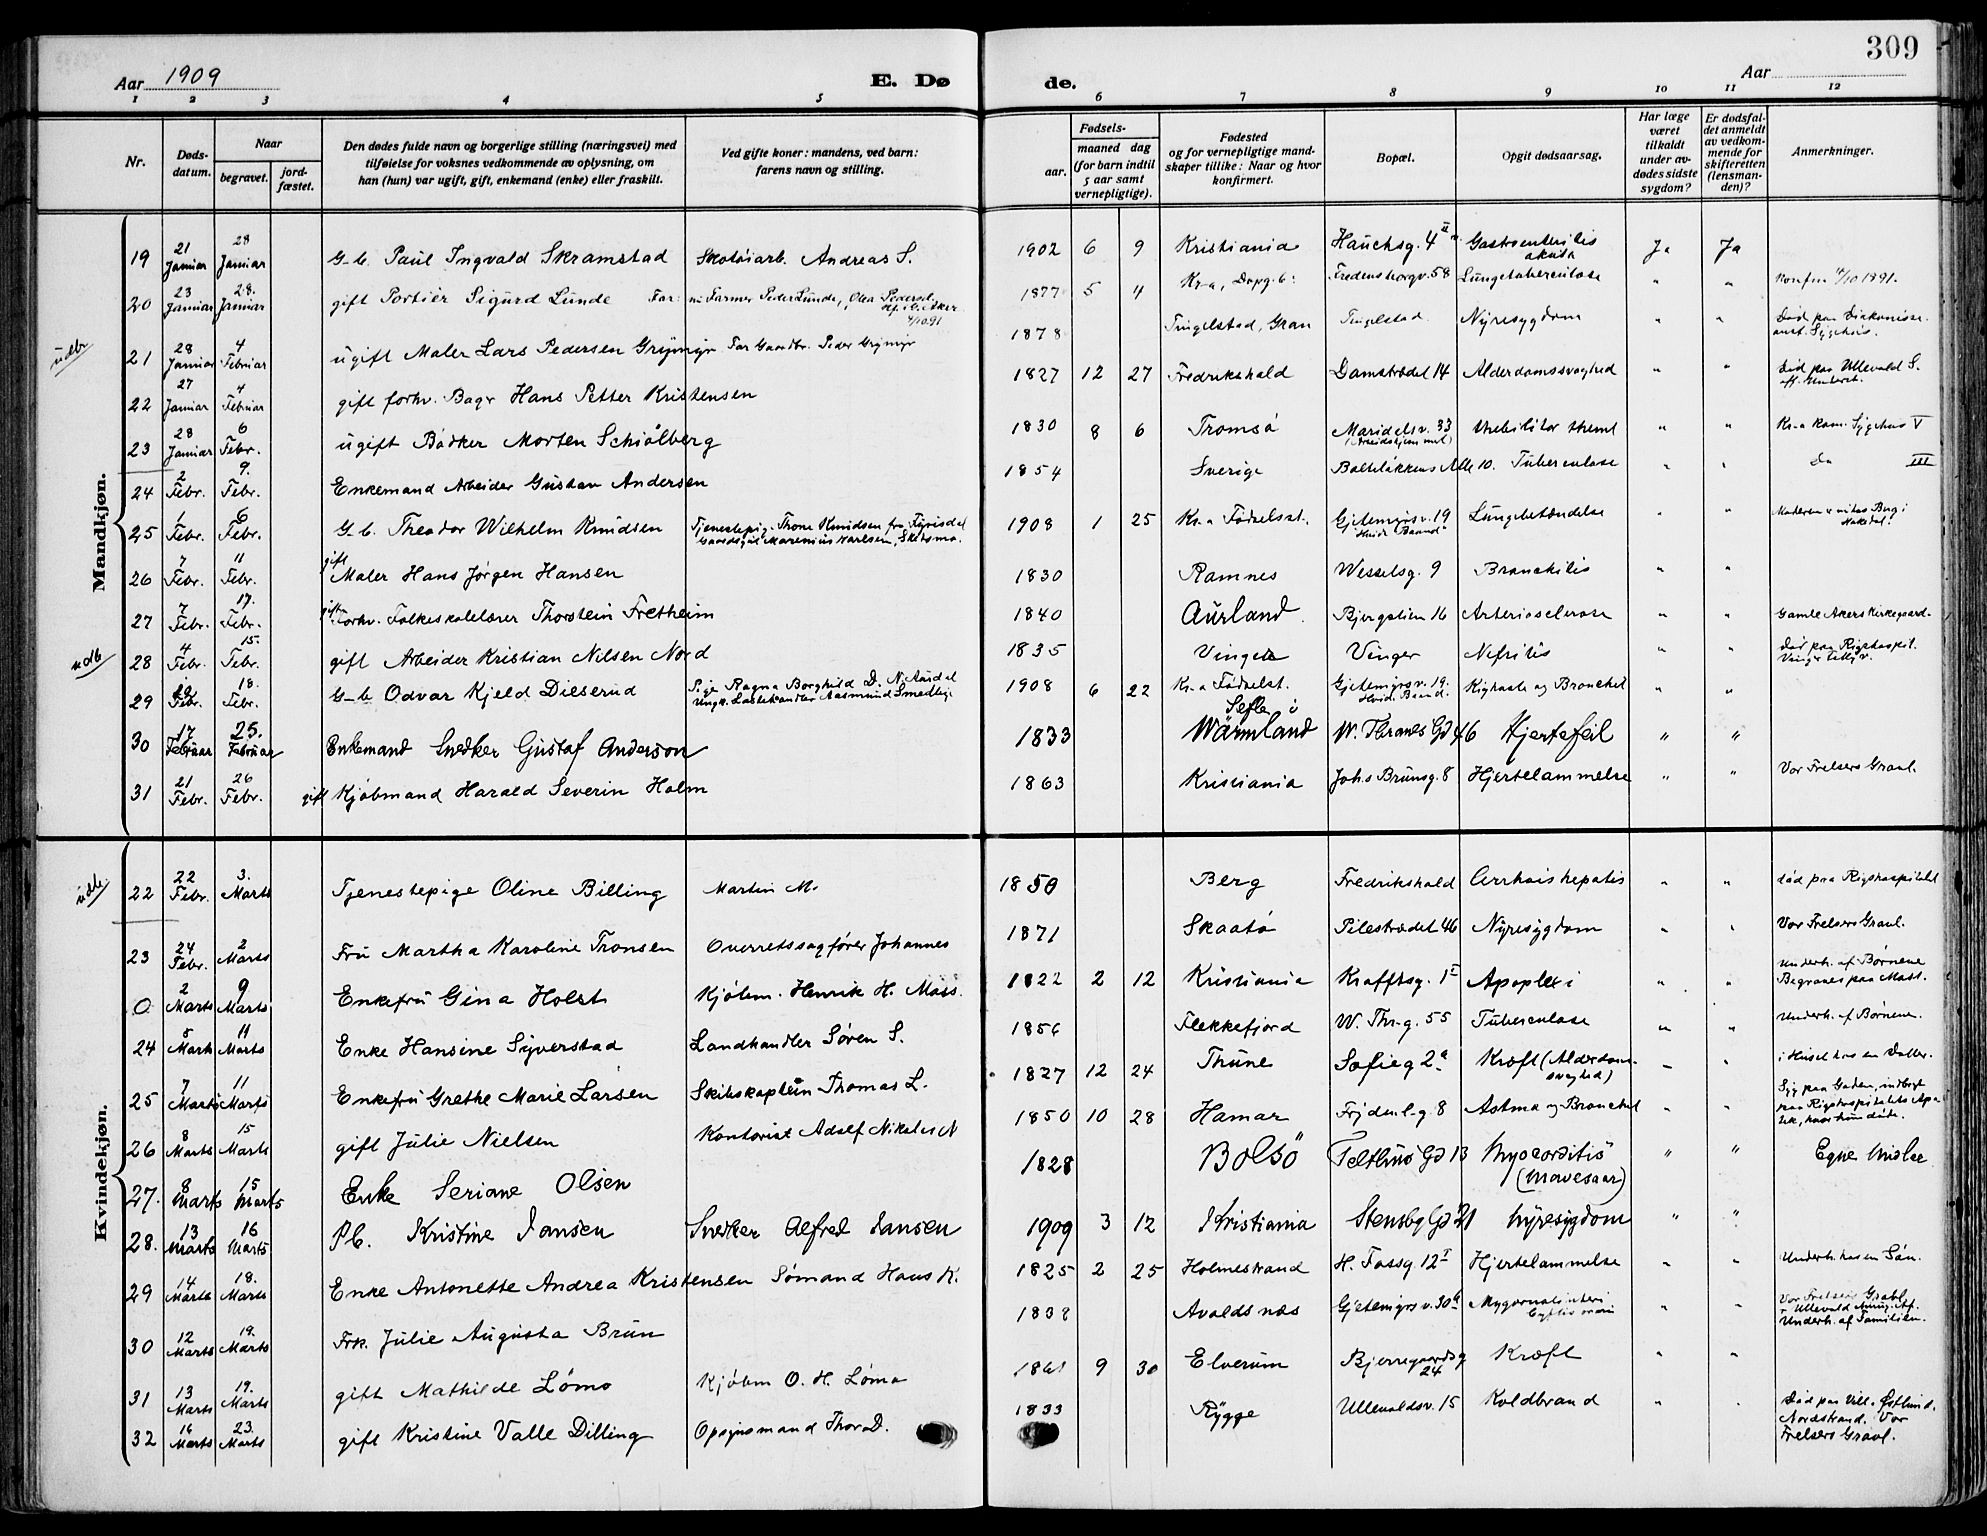 309
Aar 1909
E. Dø
de.
Aar
1 2 3 4 5 6 7 8 9 10 11 12
Nr.
Døds-datum.
Naar
begravet.
jord-fæstet.
Den dødes fulde navn og borgerlige stilling (næringsvei) med tilføielse for voksnes vedkommende av oplysning, om han (hun) var ugift, gift, enkemand (enke) eller fraskilt.
Ved gifte koner: mandens, ved barn: farens navn og stilling.
Fødsels-
aar. maaned dag (for barn indtil 5 aar samt vernepligtige).
Fødested og for vernepligtige mandskaper tillike: Naar og hvor konfirmert.
Bopæl.
Opgit dødsaarsag.
Har læge været tilkaldt under avdødes sidste sygdom?
Er dødsfaldet anmeldt av vedkommende for skifteretten (lensmanden)?
Anmerkninger.
Mandkjøn.
19 21 Januar 28 Januar G-b. Paul Ingvald Skramstad Skotøiarb. Andreas S. 1902 6 9 Kristiania Hauchsg. 4 II Gastroenteritis akuta Ja Ja
20 23 Januar 28. Januar gift Portier Sigurd Lunde Far: Farmer Peder Lunde, 1877 5 4 Kr-a, Fredensborgv. 58 Lungetuberculose " " Konfm 4/10 1891.
21 28 Januar 4 Februar ugift Maler Lars Pedersen Grymyr Far Gaardbr. Peder Grymyr 1878 Tingelstad, Gran Tingelstad Nyresygdom " " Død paa Diakonisseanst. Sygehus.
22 27 Januar 4 Februar gift forhv. Bager Hans Petter Kristensen 1827 12 27 Fredrikshald Damstrædet 14 Alderdomssvaghed " " Død paa Ullevald S.
23 28 Januar 6 Febr. ugift Bødker Morten Schiølberg 1830 8 6 Tromsø Maridalsv. 33 " " Kr-a kom. Sygehus V
24 2 Febr. 9. Febr. Enkemand Arbeider Gustav Andersen 1854 Sverige Bolteløkkens Alle 10. Tuberculose " " Do III
25 1 Febr. 6 Febr. G-b. Theodor Wilhelm Knudsen Tjenestepig. Thone Knudsen fra Fyrisdal 1908 1 25 Kr.a Fødselsst. Gjetemyrsv. 19 "Hvide Baand" Lungebetændelse " "
26 7 Febr. 11 Febr. gift Maler Hans Jørgen Hansen 1830 Ramnes Wesselsg. 9 Bronchitis " "
27 7 Febr. 17. Febr. gift Forhv. Folkeskolelærer Thorstein Fretheim 1840 Aurland Bjergstien 16 Arteriosclerose " " Gamle Akers Kirkegaard.
28 4 Febr. 15. Febr. gift Arbeider Kristian Nilsen Nord 1835 Vinger Vinger Nefritis " " Død paa Rigshospit.
29 Febr. 18. Febr. G-b Odvar Kjeld Dieserud Pige Ragna Borghild D. 1908 6 22 Kr-a Fødselst. Gjetemyrsv. 19. Hvide Baand. Kighoste og Bronchit " "
30 17 Februar 25. Februar Enkemand Snedker Gustaf Anderson 1833 Sefle i Wärmland W. Thranes Gd 46 Hjertefeil " "
31 21 Febr. 26 Febr. gift Kjøbmand Harald Severin Holm 1863 Kristiania Johs Brunsg. 8 Hjertelammelse " " Vor Frelsers Gravl.
Kvindekjøn.
22 22 Febr. 3. Marts Tjenestepige Oline Billing Martin M. 1850 Berg Fredrikshald Cirrhosis hepatis " " død paa Rigshospitalet
23 24 Febr. 2 Marts Fru Martha Karoline Tronsen Overretssagfører Johannes 1871 Skaatø Pilestrædet 46 Nyresygdom " " Vor Frelsers Gravl.
0 2 Marts 9 Marts Enkefru Gina Holst Kjøbm. Henrik H. Moss. 1822 2 12 Kristiania Krafftsg. 1 I Apoplexi " " Underh. af Børnene Begraves paa Moss.
24 5 Marts 11 Marts Enke Hansine Syverstad Landhandler Søren S. 1856 Flekkefjord W. Thr-g. 55 Tuberculose " " Underh. af Børnene.
25 7 Marts 11 Marts Enkefru Grethe Marie Larsen Skibskaptein Thomas L. 1827 12 24 Thune Sofieg 2a Kræft (Alderdomssvaghed) " " i Huset hos en Datter.
26 8 Marts 15 Marts gift Julie Nielsen Kontorist Adolf Nikolai N 1850 10 28 Hamar Frydenl-g. 8 Astma og Bronchit " " Syg paa Gaden, indbragt paa Rigshospitalets Apotek, hvor hun døde.
27. 8 Marts 15 Marts Enke Seriane Olsen 1828 Bolsö Telthus Gd 13 Myocorditis (Mavesaar) " " Egne Midler
28. 13 Marts 16 Marts Pb. Kristine Jansen Snedker Alfred Jansen 1909 3 12 Kristiania Stensbg Gd 21 Nyresygdom " "
29 14 Marts 18. Marts Enke Antonette Andrea Kristensen Sømand Hans K. 1825 2 25 Holmestrand H. Fossg. 12 I Hjertelammelse " " Underh. hos en Søn.
30 12 Marts 19. Marts Frk. Julie Augusta Brun 1838 Avaldsnæs Gjetemyrsv. 30a " " Underh. af Familien.
31 13 Marts 19. Marts gift Mathilde Lømo Kjøbm O. H. Lømo 1861 9 30 Elverum Bjerregaardsg 24 Kræft " "
32 16 Marts 23. Marts gift Kristine Valle Dilling Opsynsmand Thor D. 1833 Rygge Ullevaldsv. 15 Koldbrand " " Død paa Vill. Østlund, Nordstrand. Vor Frelsers Gravl.